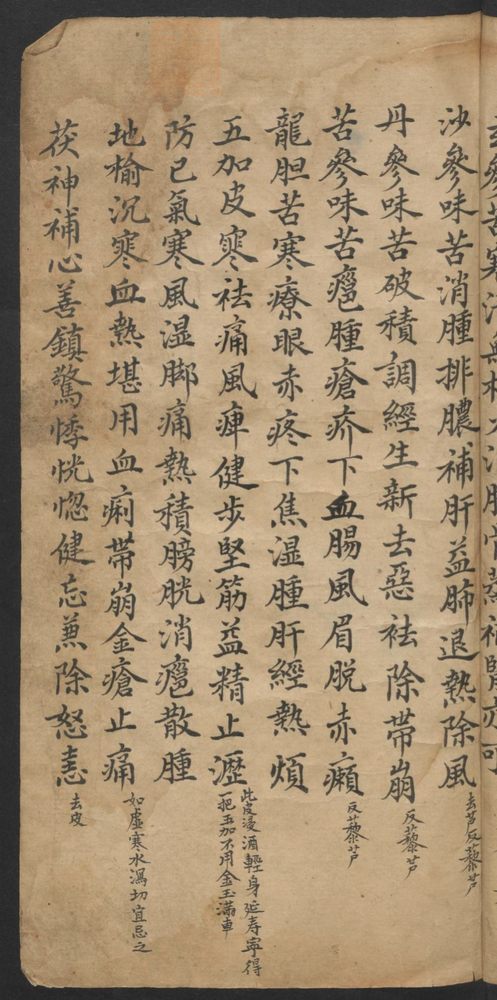 沙參味苦消腫排膿補肝益肺退熱除風 去芦反藜芦
丹參味苦破積調經生新去惡祛除帶崩 反藜芦
苦參味苦癰腫瘡疥下血腸風眉脫赤癩 反藜芦
龍胆苦寒療眼赤疼下焦湿腫肝經熱煩
五加皮寒祛痛風痺健步堅筋益精止瀝 此皮浸酒輕身延寿寧得一把五加不用金玉滿車
防已氣寒風湿脚痛熱積膀胱消癰散腫
地榆沉寒血熱堪用血痢帶崩金瘡止痛 如虛寒水瀉切宜忌之
茯神補心善鎮驚悸恍惚健忘兼除怒恚 去皮